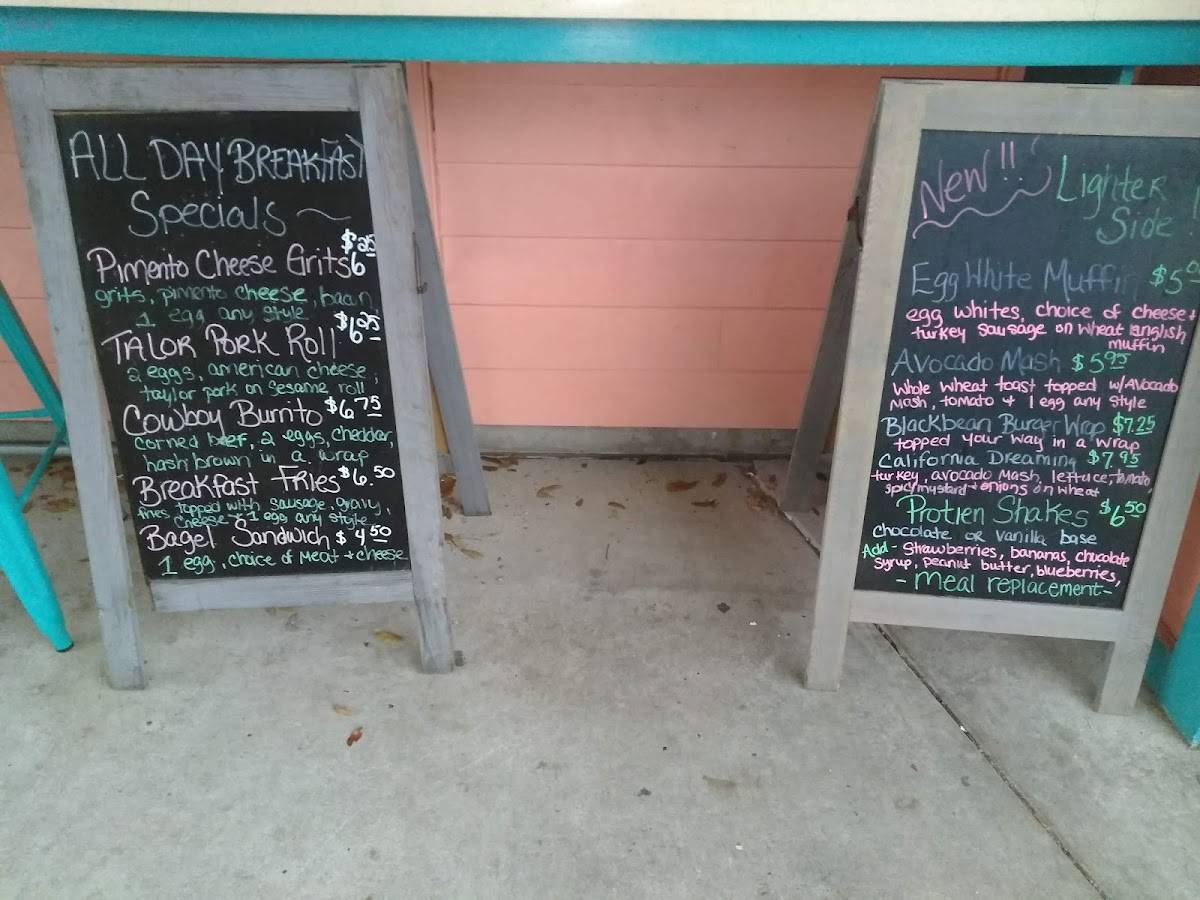 ALL DAY BREAKFAST
Specials ~
Pimento Cheese Grits $6.25
grits, pimento cheese, bacon,
1 egg any style
TALOR PORK Roll $6.25
2 eggs, american cheese,
taylor pork on sesame roll
Cowboy Burrito $6.75
corned beef, 2 eggs, cheddar,
hashbrown in a wrap
Breakfast Fries $6.50
fries topped with sausage, gravy,
cheese + 1 egg any style
Bagel Sandwich $4.50
1 egg, choice of meat + cheese
New!! Lighter
Side!
Egg White Muffin $5
egg whites, choice of cheese +
turkey sausage on wheat english
muffin
Avocado Mash $5.95
Whole wheat toast topped w/Avocado
Mash, tomato + 1 egg any style
Blackbean Burger Wrap $7.25
topped your way in a wrap
California Dreaming $7.95
turkey, avocado mash, lettuce, tomato,
spicy mustard + onions on wheat
Protien Shakes $6.50
chocolate or vanilla base
Add - Strawberries, bananas, chocolate
syrup, peanut butter, blueberries,
- Meal replacement -